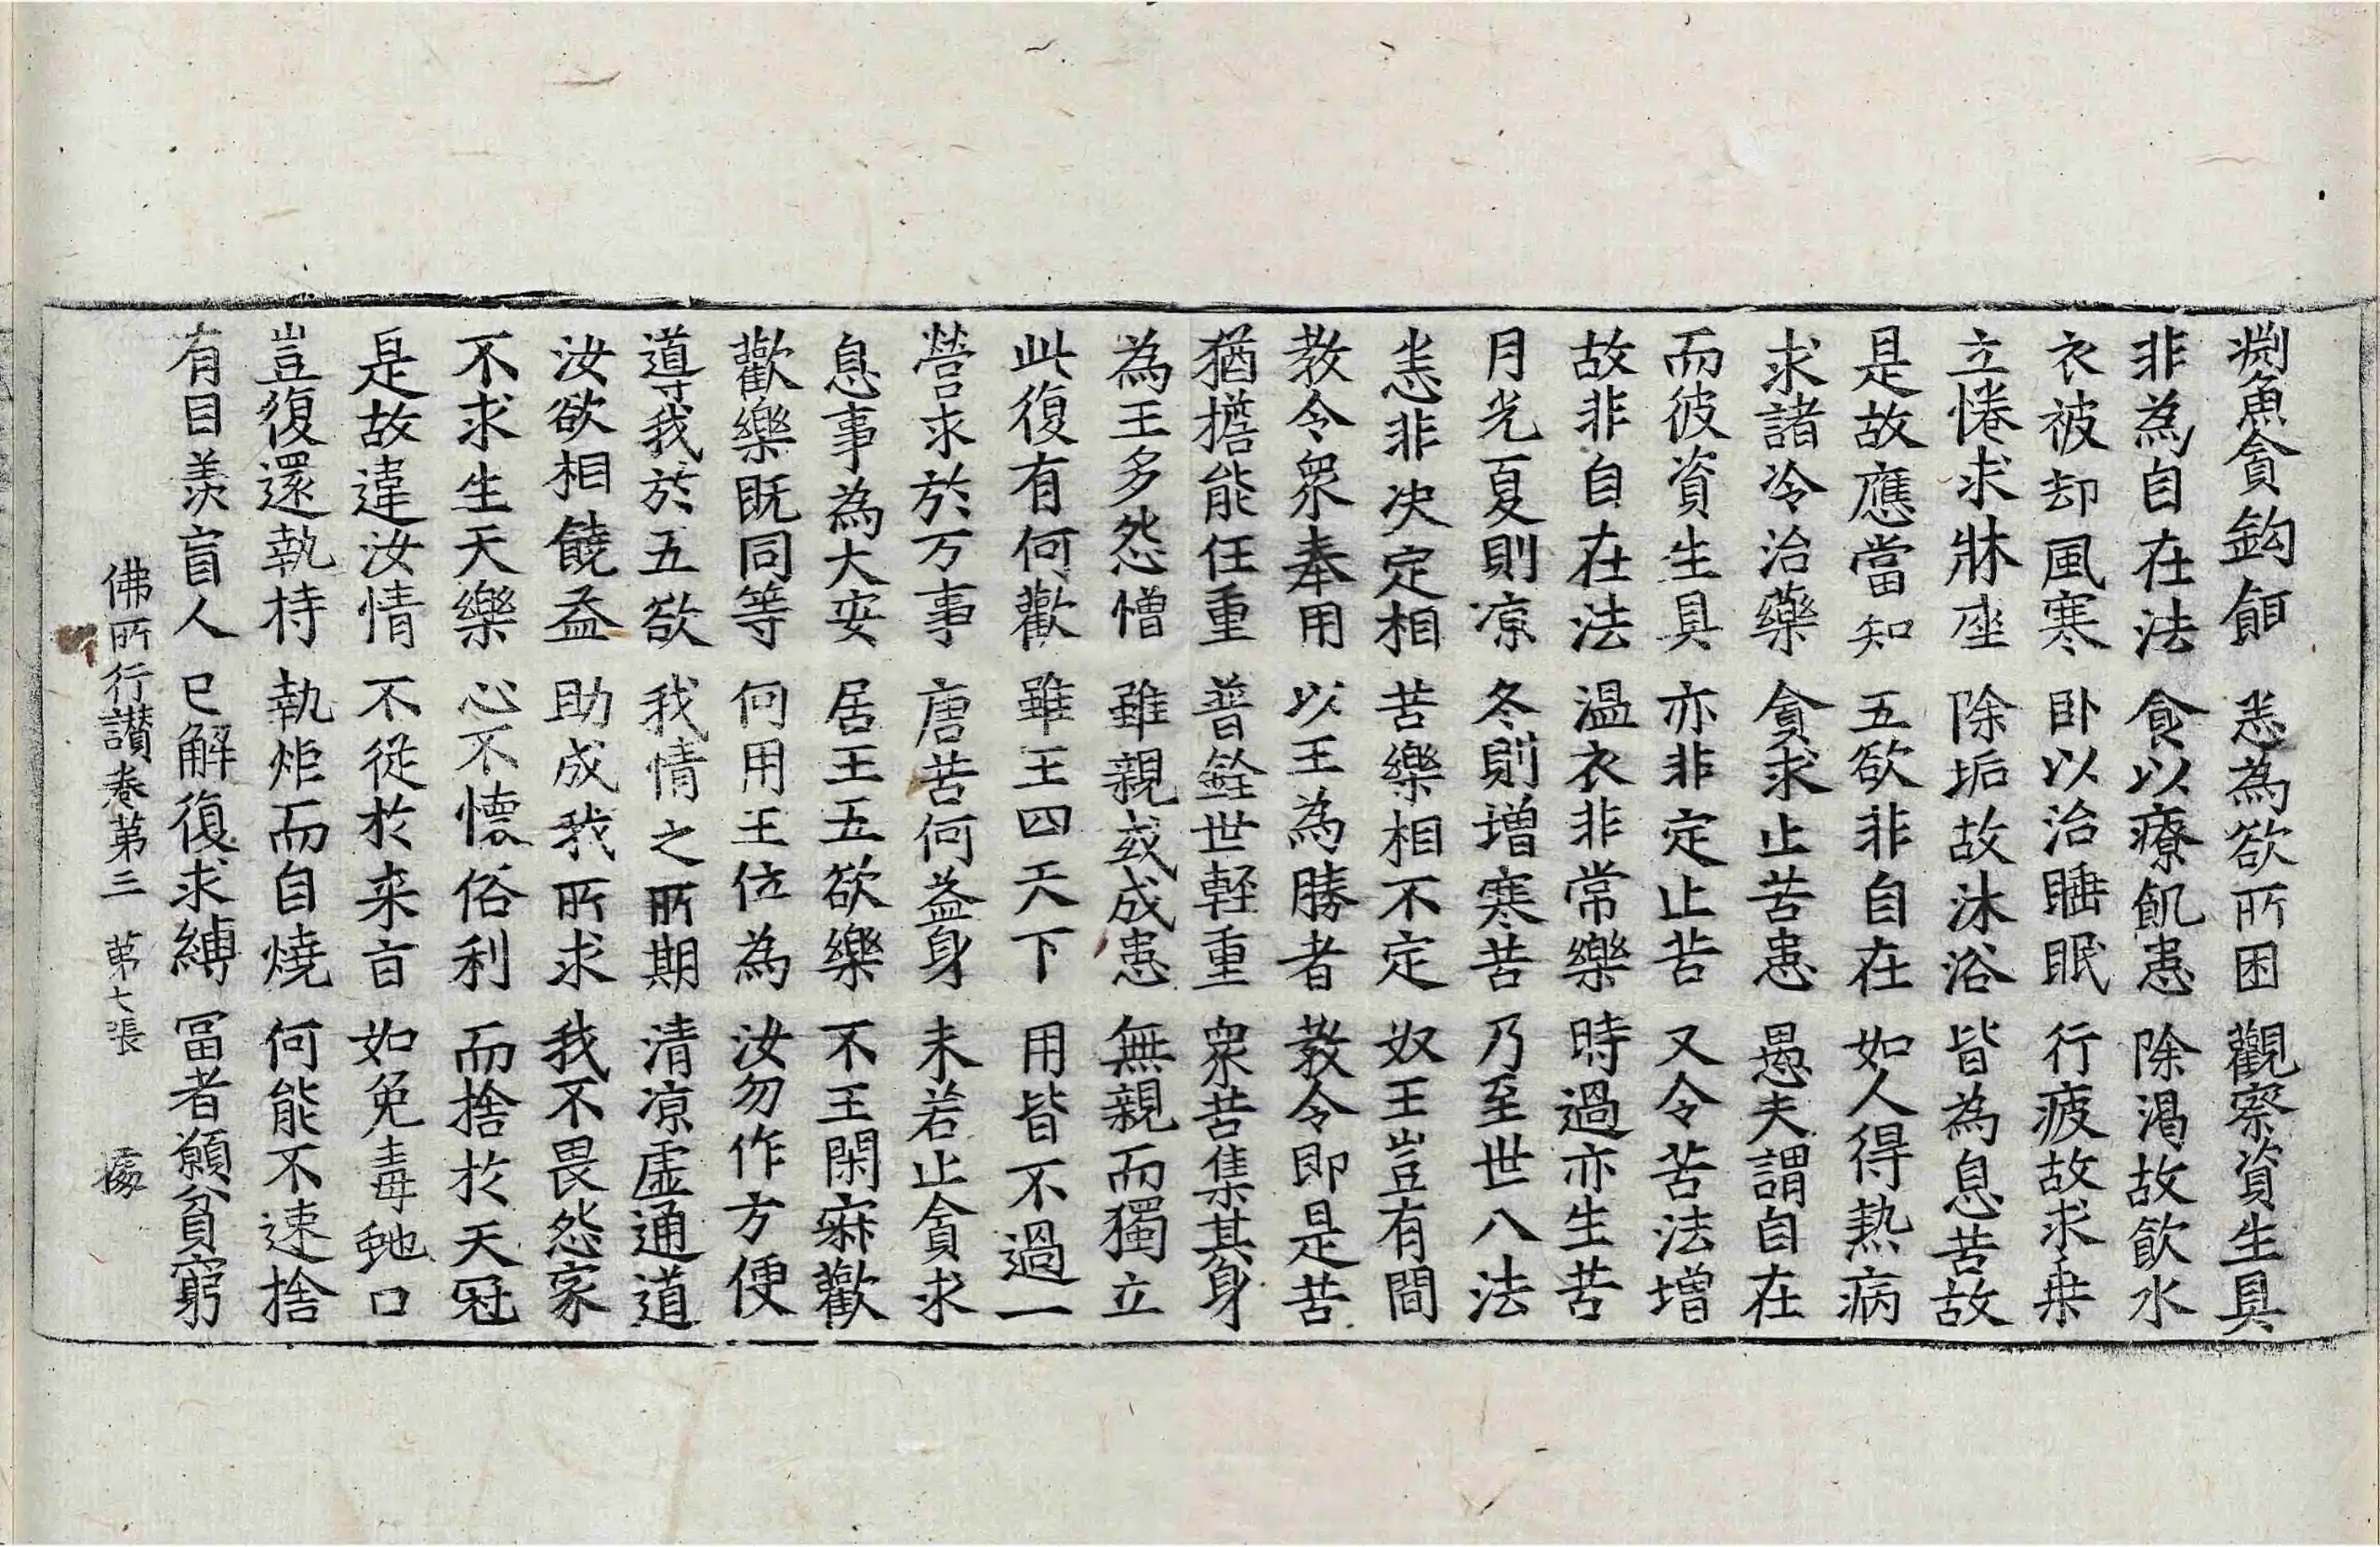 㓨魚貪鉤餌 悉為欲所困 觀察資生具
非為自在法 食以療飢患 除渴故飲水
衣被却風寒 卧以治睡眠 行疲故求乗
立惓求牀座 除垢故沐浴 皆為息苦故
是故應當知 五欲非自在 如人得熱病
求諸冷治藥 貪求止苦患 愚夫謂自在
而彼資生具 亦非定止苦 又令苦法增
故非自在法 温衣非常樂 時過亦生苦
月光夏則凉 冬則增寒苦 乃至世八法
悉非决定相 苦樂相不定 奴王豈有間
教令衆奉用 以王為勝者 教令即是苦
猶擔能任重 普銓世輕重 衆苦集其身
為王多怨憎 雖親或成患 無親而獨立
此復有何歡 雖王四天下 用皆不過一
營求於万事 唐苦何益身 未若止貪求
息事為大安 居王五欲樂 不王閑寂歡
歡樂既同等 何用王位為 汝勿作方便
導我於五欲 我情之所期 清凉虛通道
汝欲相饒益 助成我所求 我不畏怨家
不求生天樂 心不懷俗利 而捨於天冠
是故違汝情 不從於来旨 如免毒虵口
豈復還執持 執炬而自燒 何能不速捨
有目羡盲人 已解復求縛 冨者願貧窮
佛所行讃卷第三 苐七張